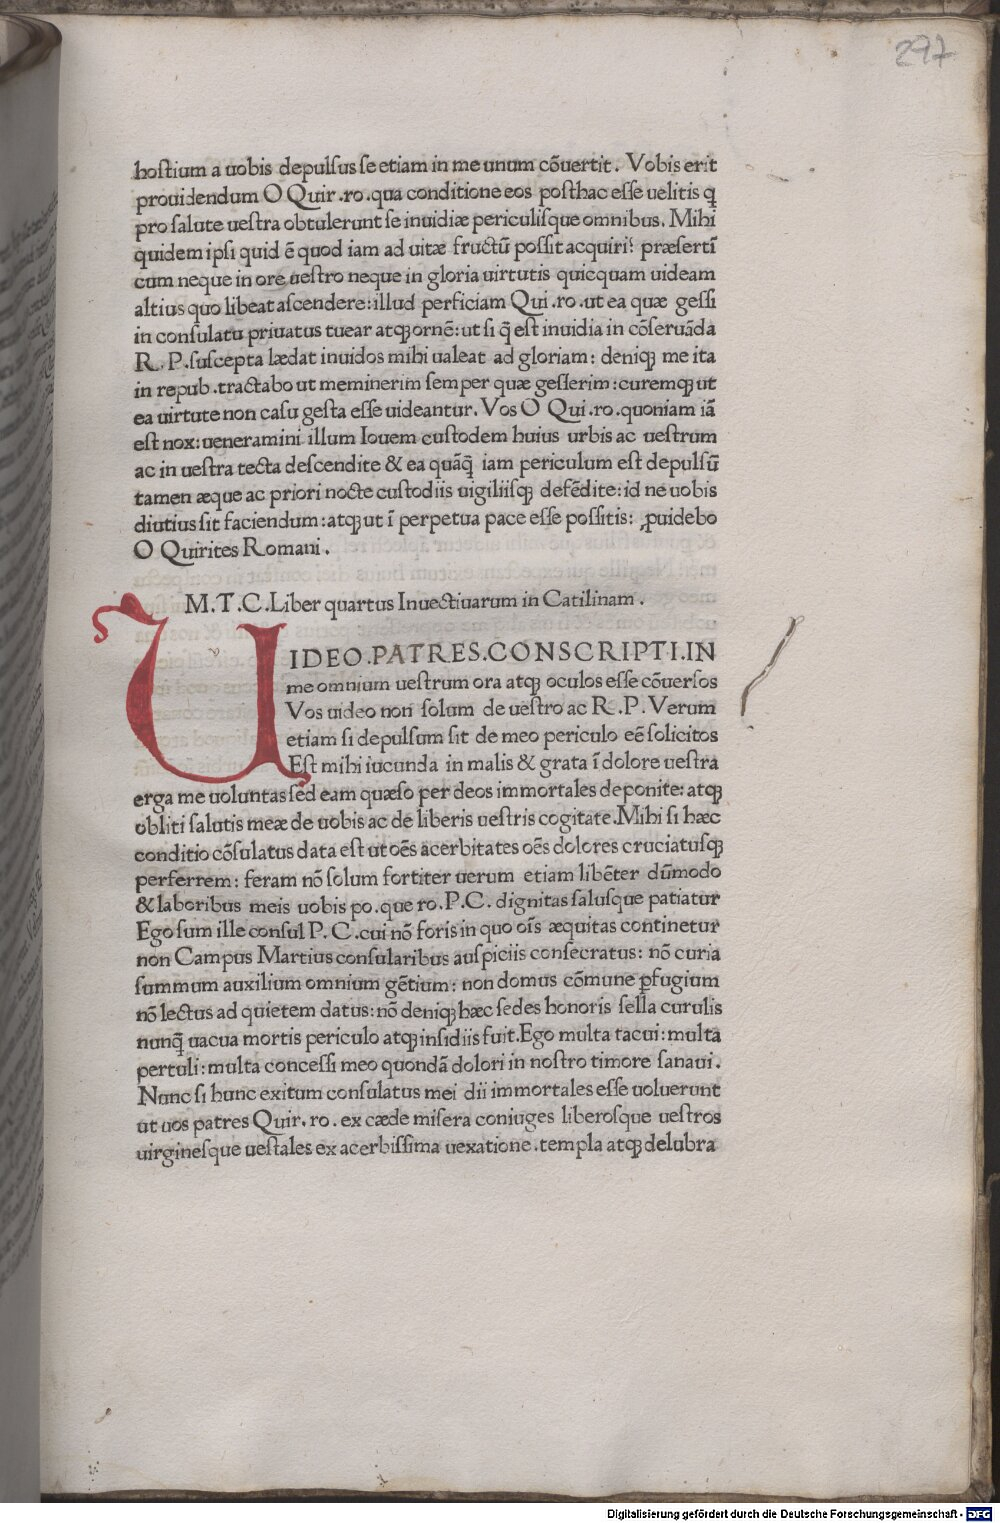 297
hostium a uobis depulsus se etiam in me unum cõuertit. Vobis erit
prouidendum O Quir.ro.qua conditione eos posthac esse uelitis q̃
pro salute uestra obtulerunt se inuidiæ periculisque omnibus. Mihi
quidem ipsi quid ẽ quod iam ad uitæ fructũ possit acquiri? præsertĩ
cum neque in ore uestro neque in gloria uirtutis quicquam uideam
altius quo libeat ascendere: illud perficiam Qui.ro.ut ea quæ gessi
in consulatu priuatus tuear atqꝫ ornẽ: ut si q̃ est inuidia in cõseruãda
R.P.suscepta lædat inuidos mihi ualeat ad gloriam: deniqꝫ me ita
in repub.tractabo ut meminerim semper quæ gesserim: curemqꝫ ut
ea uirtute non casu gesta esse uideantur. Vos O Qui.ro.quoniam iã
est nox: ueneramini illum Iouem custodem huius urbis ac uestrum
ac in uestra tecta descendite & ea quãq̃ iam periculum est depulsũ
tamen æque ac priori nocte custodiis uigiliisqꝫ defẽdite: id ne uobis
diutius sit faciendum: atqꝫ ut ĩ perpetua pace esse possitis: ꝓuidebo
O Quirites Romani.
M.T.C.Liber quartus Inuectiuarum in Catilinam.
UIDEO.PATRES.CONSCRIPTI.IN
me omnium uestrum ora atqꝫ oculos esse cõuersos
Vos uideo non solum de uestro ac R.P.Verum
etiam si depulsum sit de meo periculo eẽ solicitos
Est mihi iucunda in malis & grata ĩ dolore uestra
erga me uoluntas sed eam quæso per deos immortales deponite: atqꝫ
obliti salutis meæ de uobis ac de liberis uestris cogitate.Mihi si hæc
conditio cõsulatus data est ut oẽs acerbitates oẽs dolores cruciatusqꝫ
perferrem: feram nõ solum fortiter uerum etiam libẽter dũmodo
& laboribus meis uobis po.que ro.P.C. dignitas salusque patiatur
Ego sum ille consul P.C.cui nõ foris in quo oĩs æquitas continetur
non Campus Martius consularibus auspiciis consecratus: nõ curia
summum auxilium omnium gẽtium: non domus cõmune ꝑfugium
nõ lectus ad quietem datus: nõ deniqꝫ hæc sedes honoris sella curulis
nunq̃ uacua mortis periculo atqꝫ insidiis fuit.Ego multa tacui: multa
pertuli: multa concessi meo quondã dolori in nostro timore sanaui.
Nunc si hunc exitum consulatus mei dii immortales esse uoluerunt
ut uos patres Quir.ro.ex cæde misera coniuges liberosque uestros
uirginesque uestales ex acerbissima uexatione.templa atqꝫ delubra
Digitalisierung gefördert durch die Deutsche Forschungsgemeinschaft - DFG